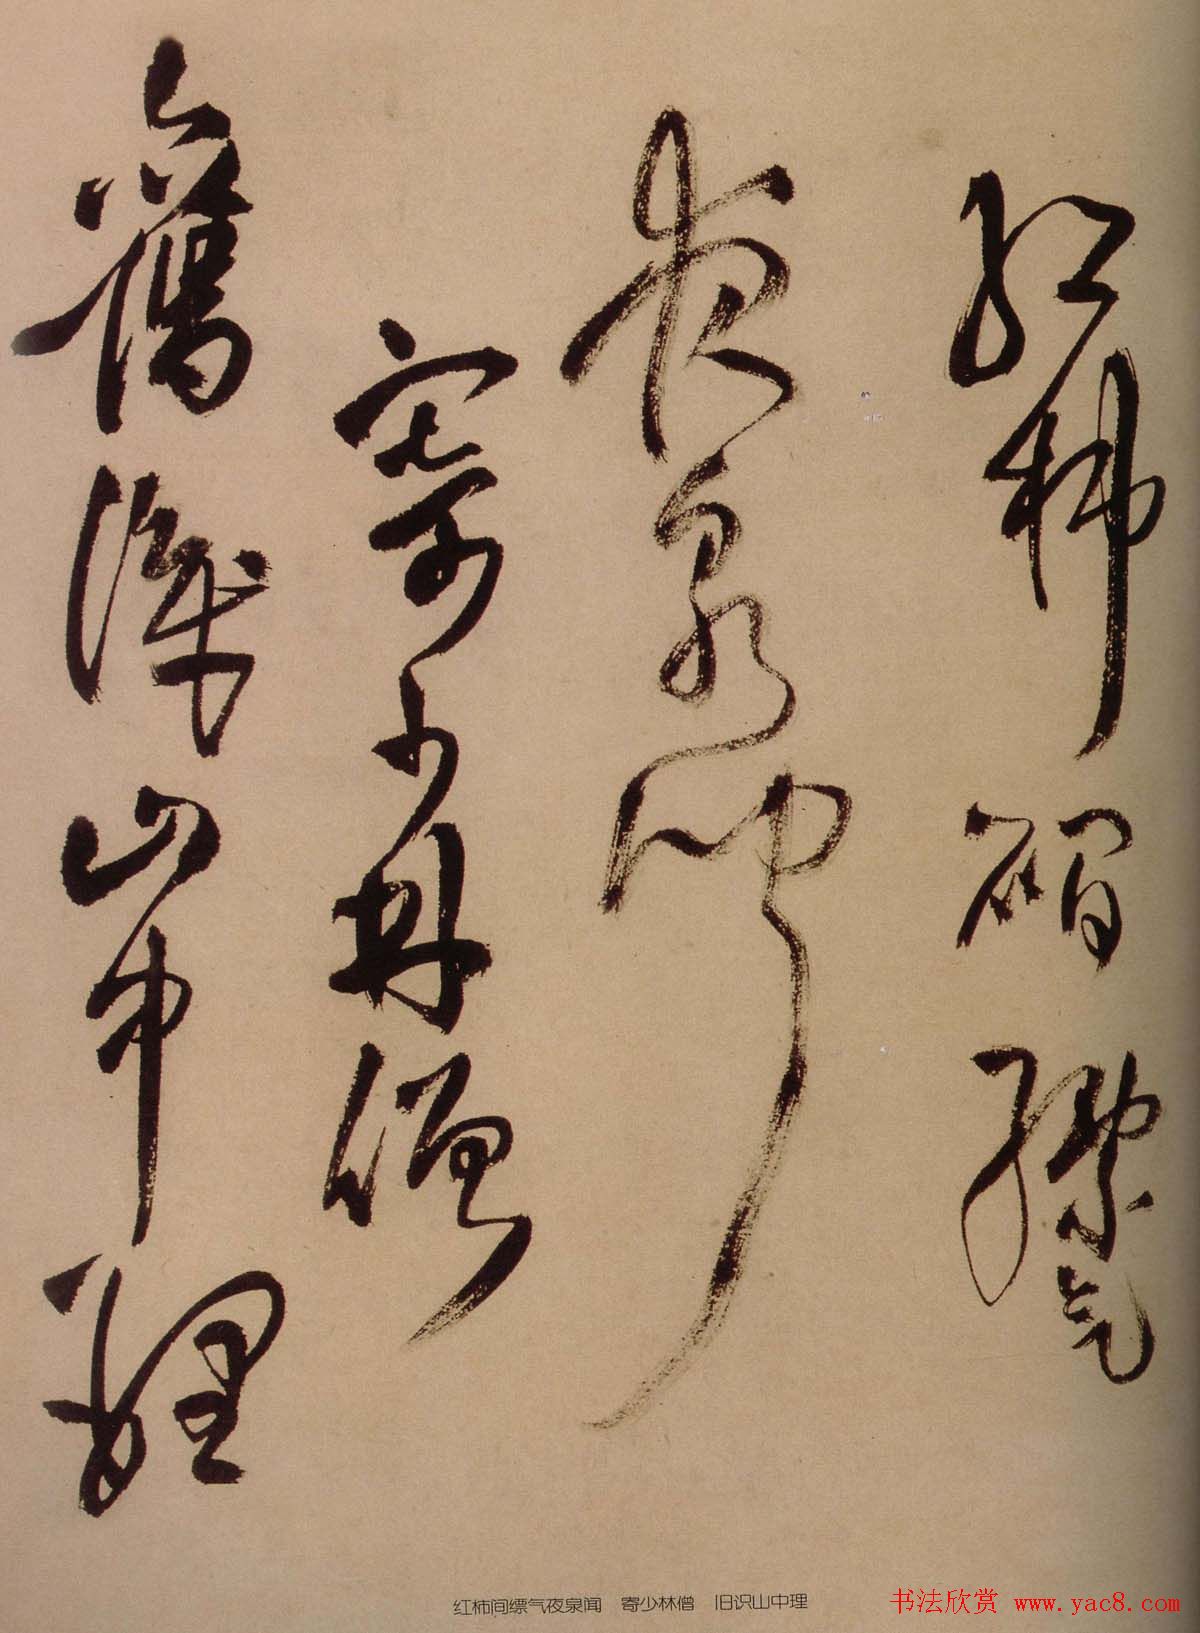 紅柿間縹气
夜泉聞
寄少林僧
舊識山中理
红柿间缥气夜泉闻 寄少林僧 旧识山中理
书法欣赏 www.yac8.com